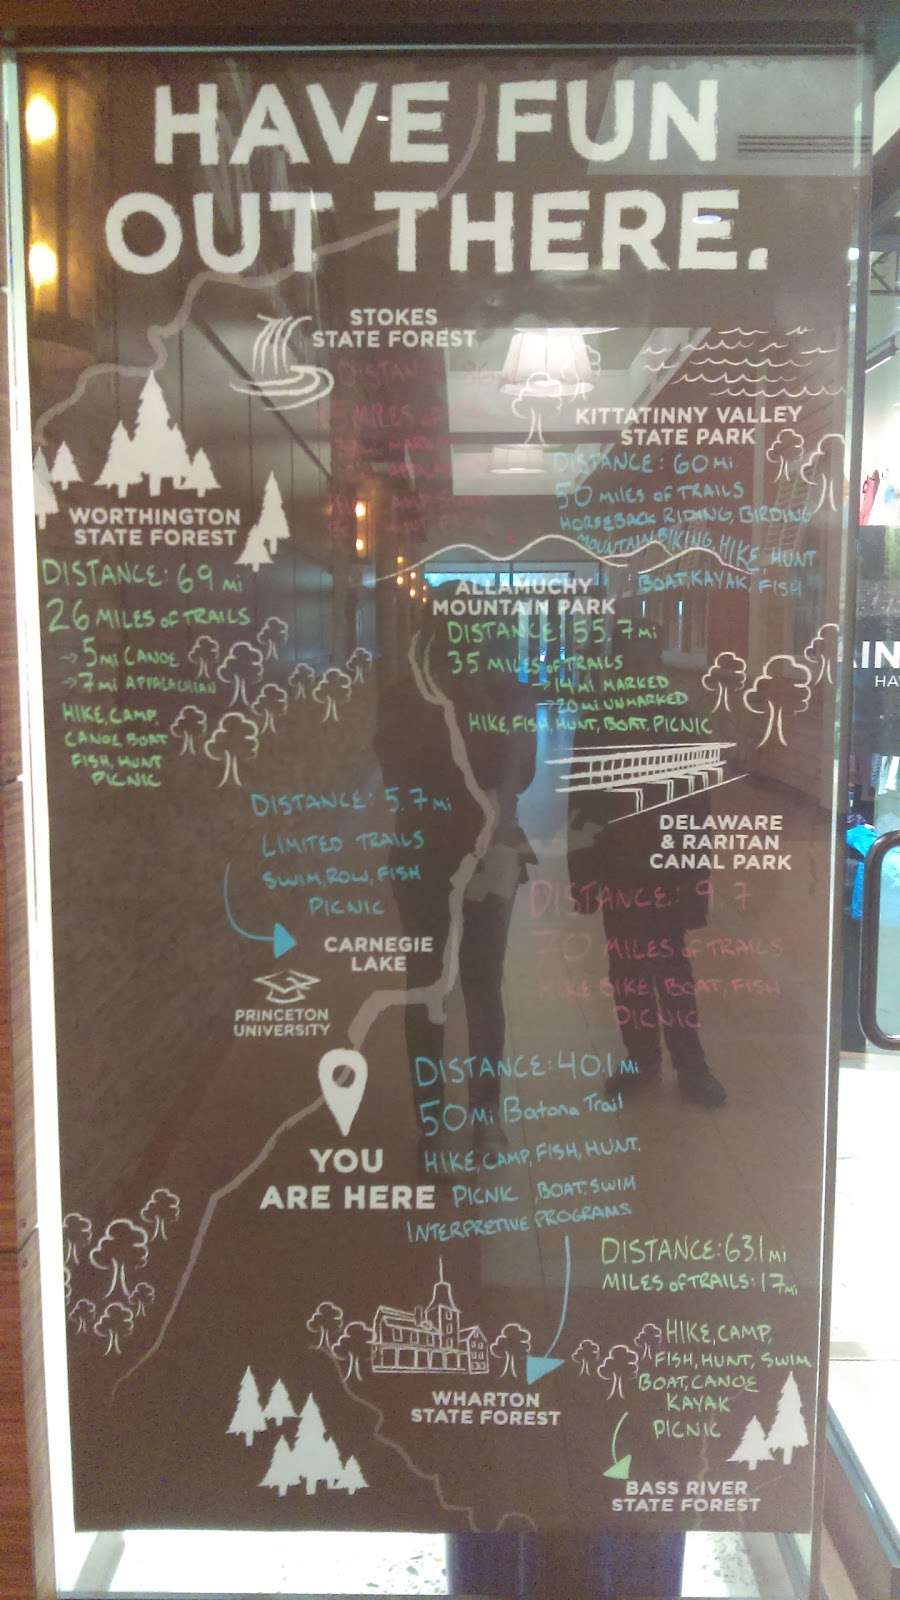 HAVE FUN
OUT THERE.
STOKES
STATE FOREST
MILES OF
KITTATINNY VALLEY
STATE PARK
DISTANCE: 60 Mi
50 MILES OF TRAILS
HORSEBACK RIDING, BIRDING
MOUNTAIN BIKING, HIKE, HUNT
BOAT, KAYAK, FISH
WORTHINGTON
STATE FOREST
DISTANCE: 69 mi
26 MILES OF TRAILS
→ 5mi CANOE
→ 7mi APPALACHIAN
HIKE, CAMP,
CANOE, BOAT
FISH, HUNT
PICNIC
ALLAMUCHY
MOUNTAIN PARK
DISTANCE: 55.7mi
35 MILES of TRAILS
→ 14 mi MARKED
→ 20 mi UNMARKED
HIKE, FISH, HUNT, BOAT, PICNIC
DISTANCE: 5.7 mi
LIMITED TRAILS
SWIM, ROW, FISH
PICNIC
CARNEGIE
LAKE
PRINCETON
UNIVERSITY
DELAWARE
& RARITAN
CANAL PARK
DISTANCE: 9.7
70 MILES of TRAILS
HIKE BIKE, BOAT, FISH
PICNIC
YOU
ARE HERE
DISTANCE: 40.1 Mi
50 Mi Batona Trail
HIKE, CAMP, FISH, HUNT,
PICNIC, BOAT, SWIM
INTERPRETIVE PROGRAMS
WHARTON
STATE FOREST
DISTANCE: 63.1 mi
MILES of TRAILS: 17 mi
HIKE, CAMP,
FISH, HUNT, SWIM
BOAT, CANOE
KAYAK
PICNIC
BASS RIVER
STATE FOREST